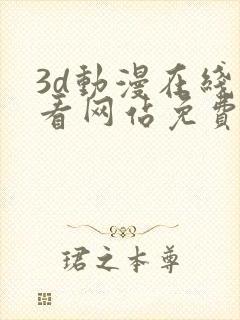 3d動漫在綫
看网站免費
珺之本尊